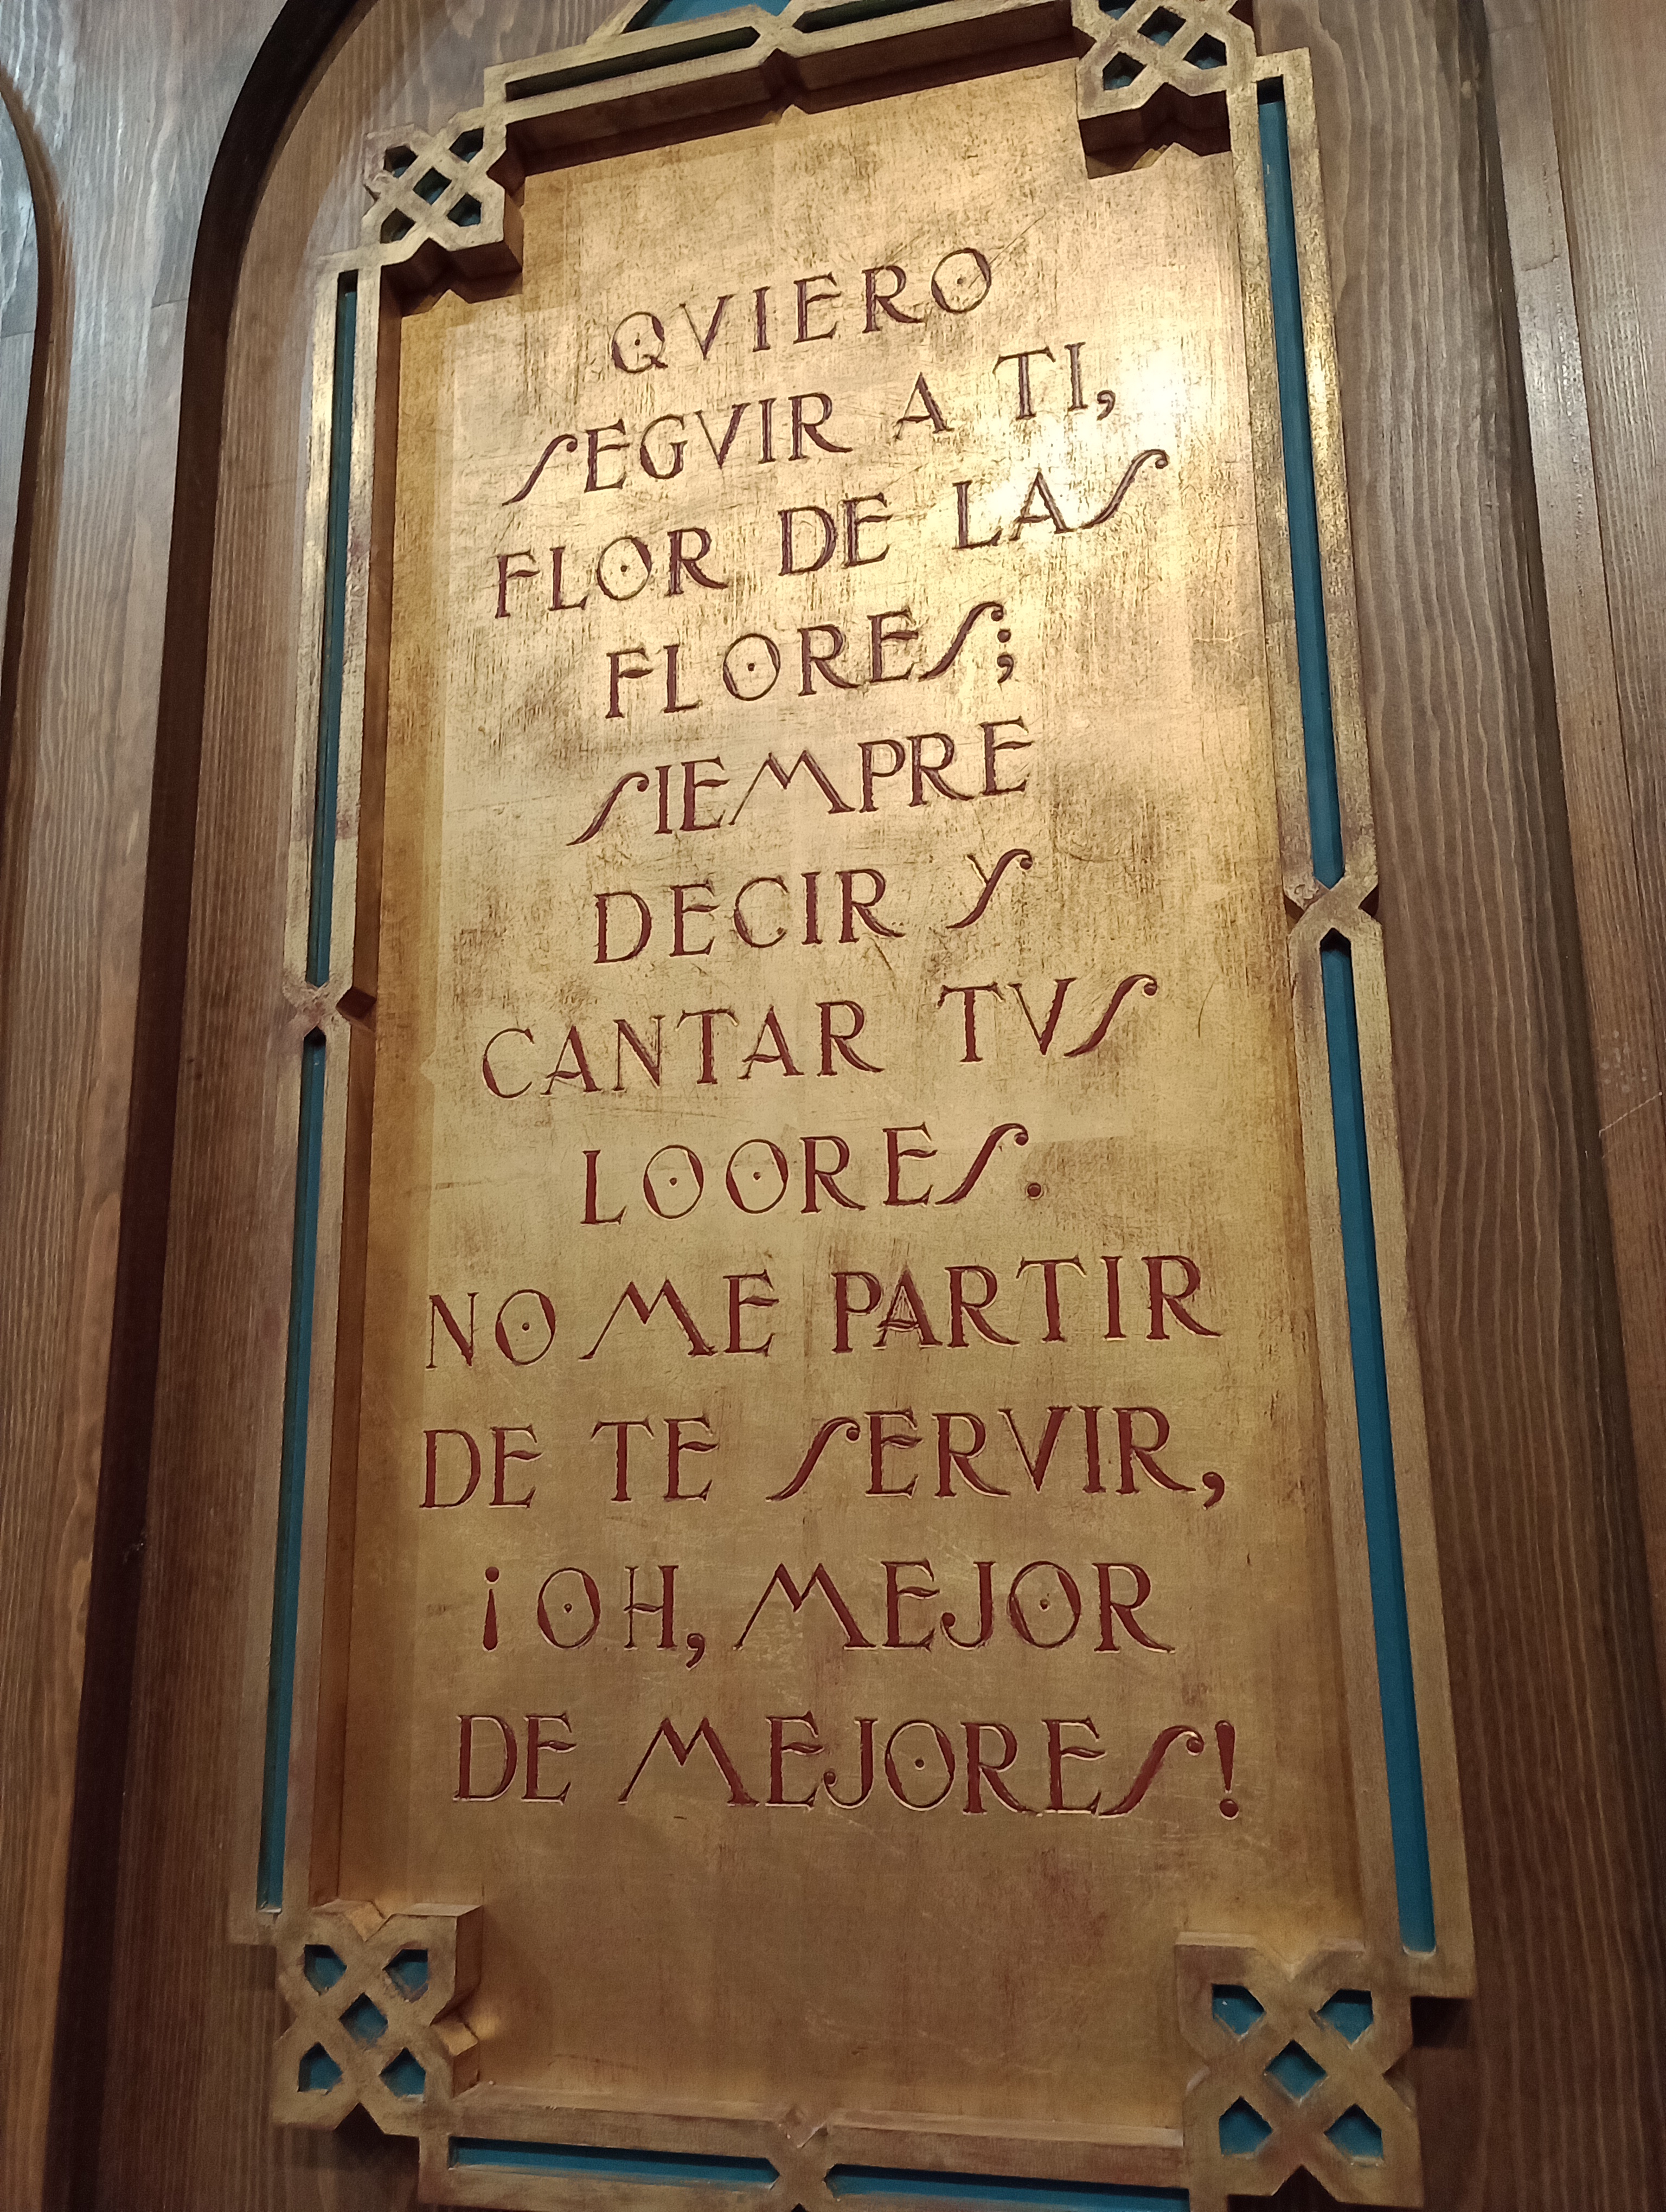 QVIERO
SEGVIR A TI,
FLOR DE LAS
FLORES;
SIEMPRE
DECIR Y
CANTAR TVS
LOORES.
NO ME PARTIR
DE TE SERVIR,
¡OH, MEJOR
DE MEJORES!